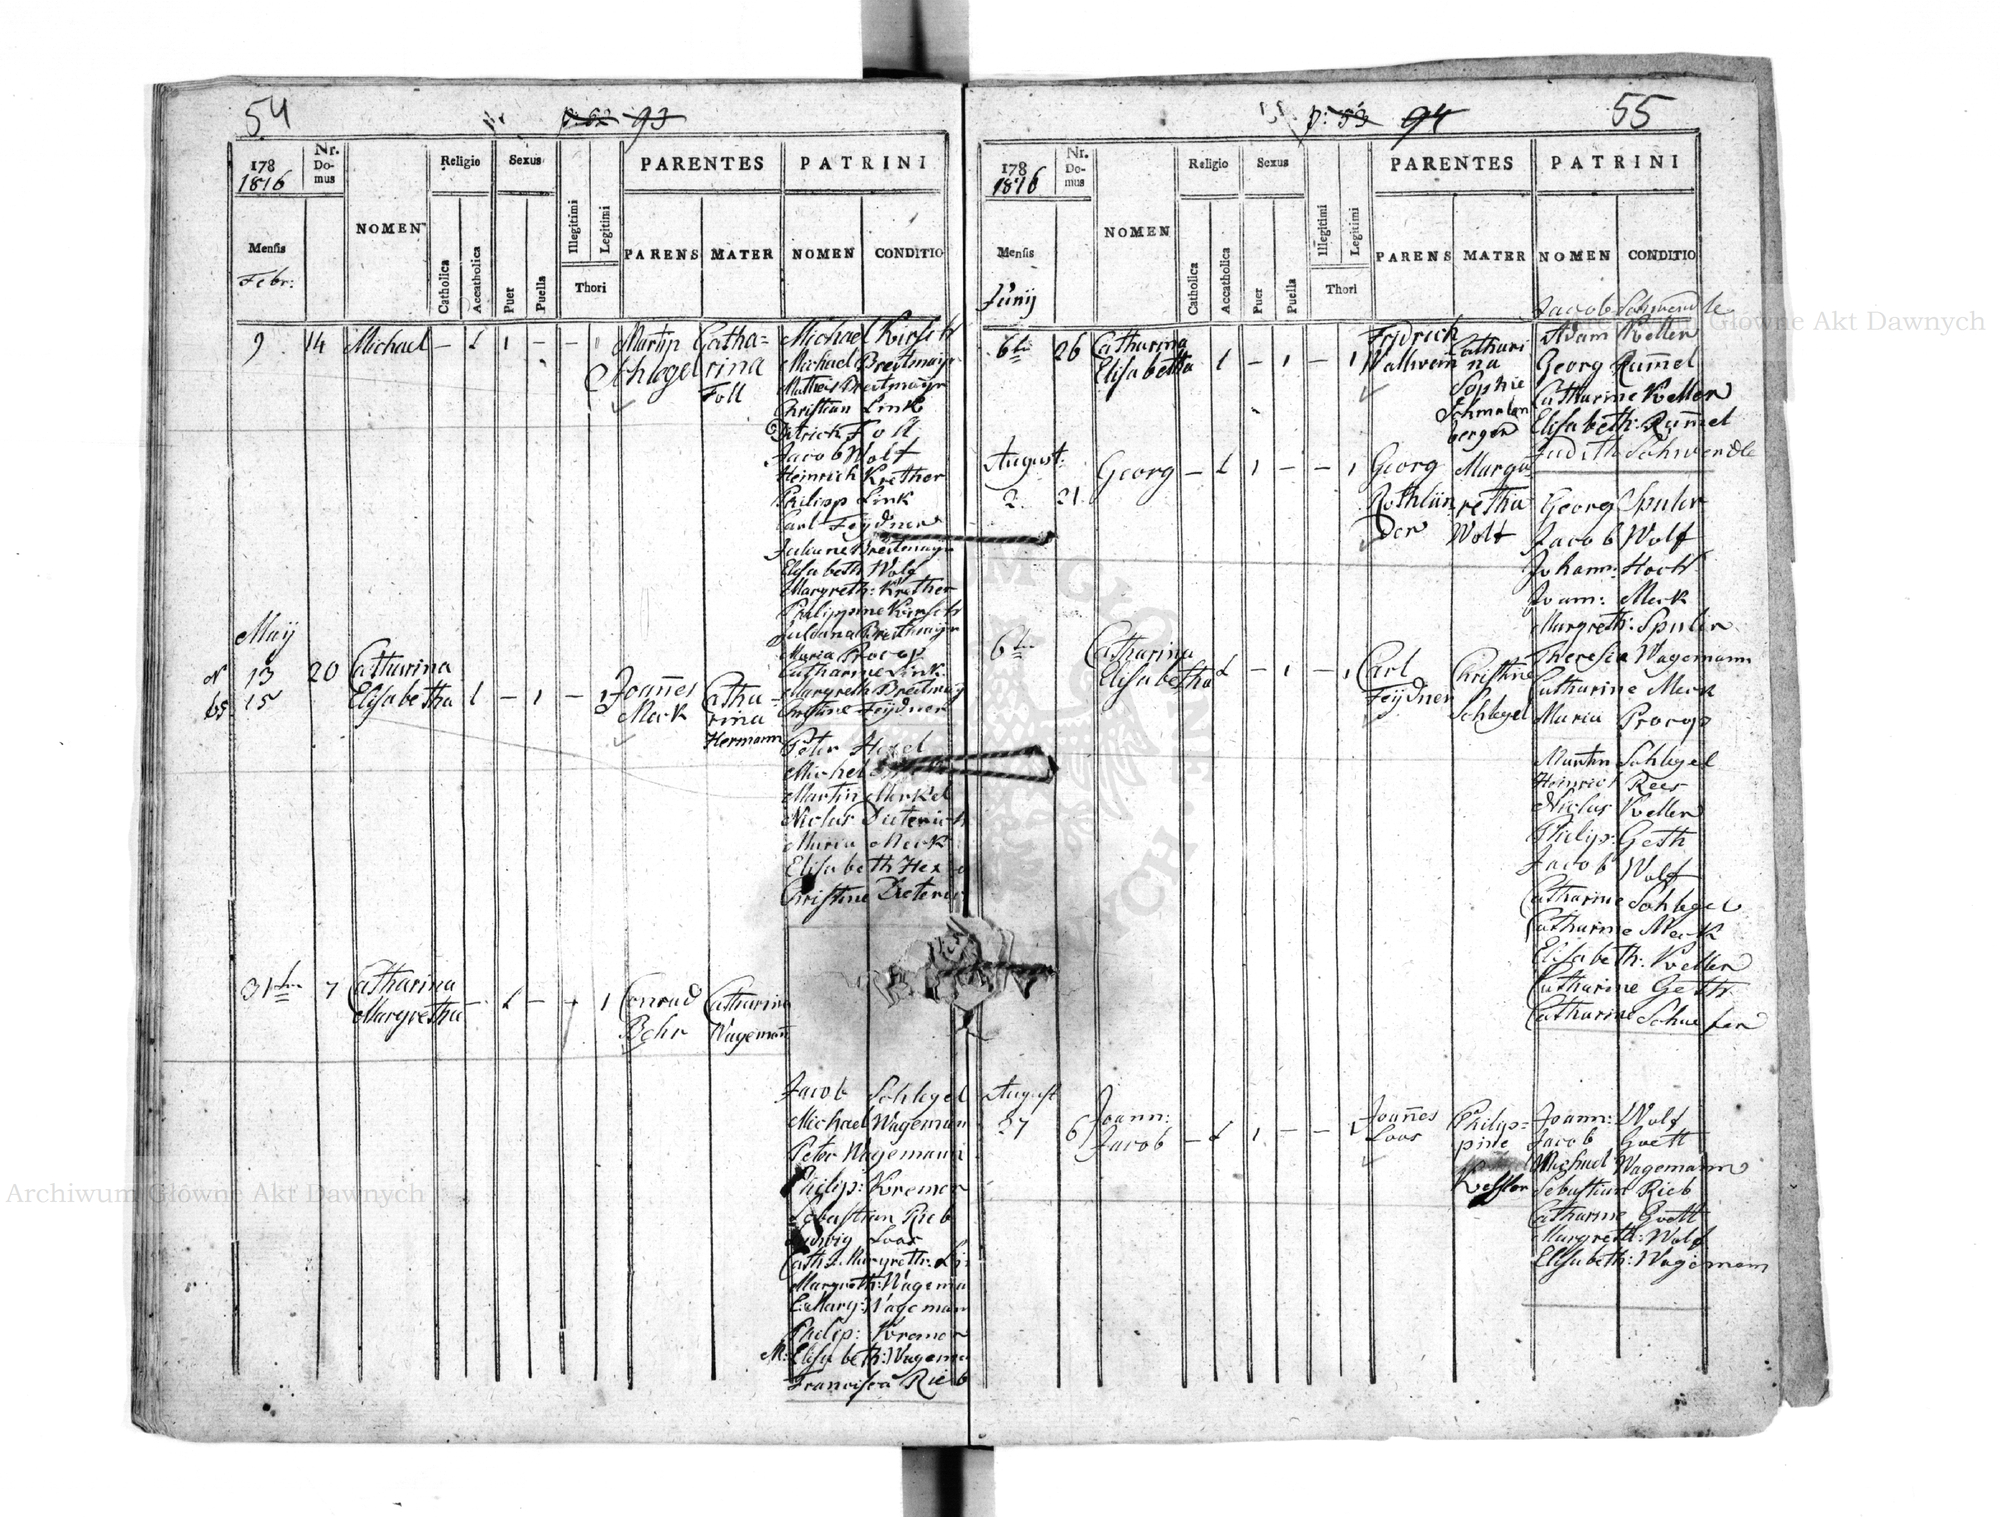 54
p: 52 93
178
1816
Nr.
Do-
mus
Religio
Sexus
PARENTES
PATRINI
NOMEN
Mensis
Febr:
Catholica
Accatholica
Puer
Puella
Illegitimi
Legitimi
Thori
PARENS
MATER
NOMEN
CONDITIO
9 14 Michael — 1 1 — — 1
Martin
Schlegel
Catha=
rina
Foll
Michael Kirsch
Michael Breitmayr
Matheis Breitmayr
Christian Link
Ditrick Foll
Jacob Wolf
Heinrich Krether
Philipp Link
Carl Feydner
Juliane Breitmayr
Elisabeth Wolf
Margreth: Krether
Philippine Kirsch
Juliana Breitmayr
Maria Procop
Catharine Link
Margreth Breitmayr
Christine Feijdner
Maij
N 13 20 Catharina
bt 15 Elisabetha 1 — 1 — 1
Joannes
Meck
Catha-
rina
Hermann
Peter Hexel
Michel
Martin Merkel
Niclas Dieterich
Maria Meck
Elisabeth Hex
Christine Dieterich
31ten 7 Catharina
Margretha
Conrad
Behr
Catharina
Wagemann
Jacob Schlegel
Michael Wagemann
Peter Wagemann
Philip: Kremer
Sebastian Rieb
Ludwig Loos
Cath. Margreth.
Margreth: Wagema
E: Marg: Wageman
Philip: Kremer
M: Elisabeth: Wagema
Francisca Rieb
55
p: 53 94
178
1816
Nr.
Do-
mus
Religio
Sexus
PARENTES
PATRINI
NOMEN
Mensis
Junij
Catholica
Accatholica
Puer
Puella
Illegitimi
Legitimi
Thori
PARENS
MATER
NOMEN
CONDITIO
6ten 26 Catharina
Elisabetha 1 — 1 — 1
Fridrich
Walhrein
Cathari
na
Sophie
Schmalen
berger
Jacob Schwendle
Adam Keller
Georg Rumel
Catharine Keller
Elisabeth: Rumel
Judith Schwendle
August:
2 21 Georg — 1 1 — — 1
Georg
Rothlän
der
Marga
retha
Wolf
Georg Spuler
Jacob Wolf
Johann: Hoch
Joann: Meck
Margreth: Spuler
Theresia Wagemann
Catharine Meck
Maria Procop
6ten Catharina
Elisabetha 1 — 1 — 1
Carl
Feijdner
Christine
Schlegel
Martin Schlegel
Heinrich Rees
Niclas Keller
Philip: Geth
Jacob Wolf
Catharine Schlegel
Catharine Meck
Elisabeth: Keller
Catharine Geth
Catharine Schaefer
August
27 6 Joann:
Jacob — 1 1 — — 1
Joannes
Loos
Philip=
pine
Kessler
Joann: Wolf
Jacob Goett
Michael Wagemann
Sebastian Rieb
Catharine Goett
Margreth: Wolf
Elisabeth: Wagemann
Archiwum Główne Akt Dawnych
Archiwum Główne Akt Dawnych